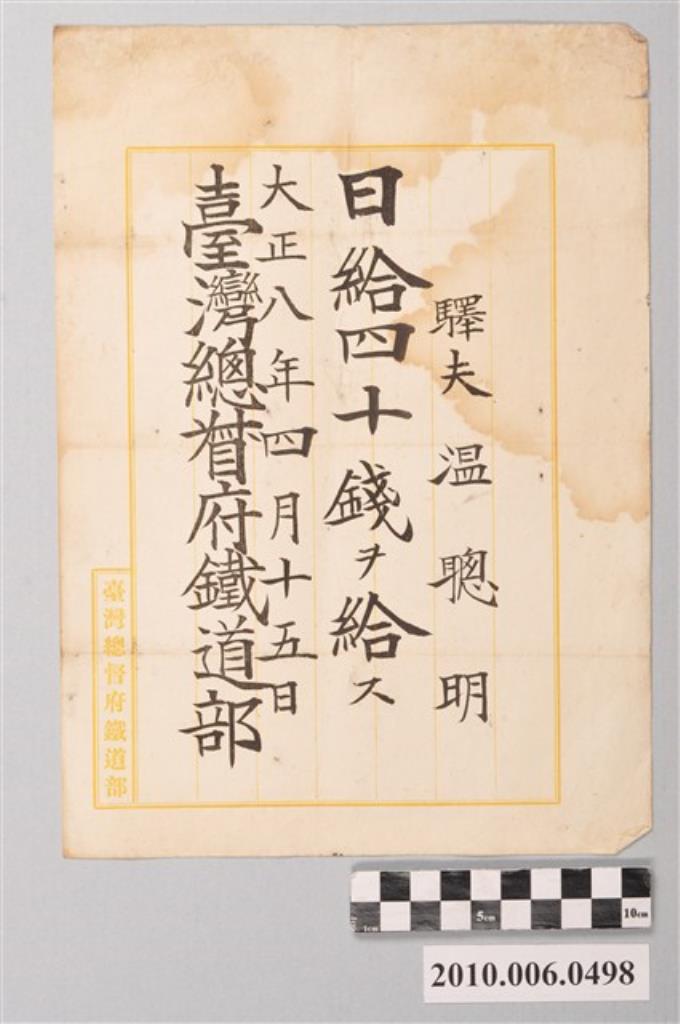 驛夫 温聰明
日給四十錢ヲ給ス
大正八年四月十五日
臺灣總督府鐵道部
臺灣總督府鐵道部
1cm 5cm 10cm
2010.006.0498